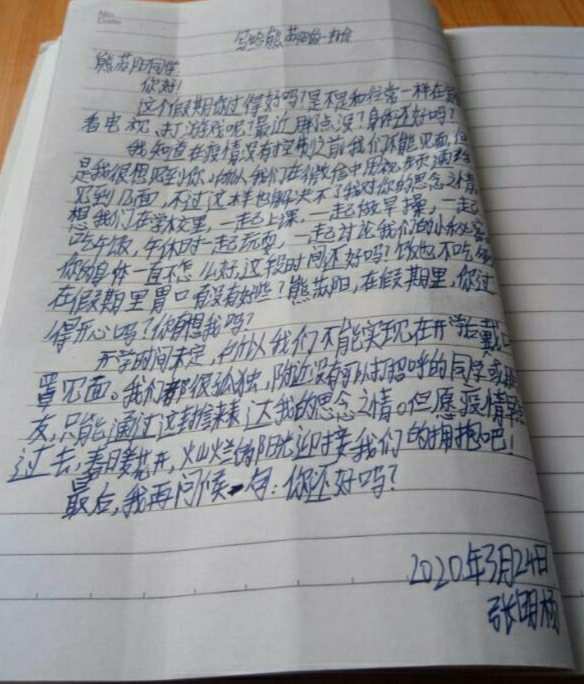 写给熊芮阳的一封信
熊芮阳同学
你好!
这个假期你过得好吗?是不是和往常一样在家
看电视、打游戏呢?最近胖点没?身体还好吗?
我知道在疫情没有控制之前,我们不能见面,但
是我很想见到你,所以我们在微信中用视频通话
见到了面,不过这样也解决不了我对你的思念之情
想我们在学校里,一起上课,一起做早操,一起
吃午饭,午休时一起玩耍,一起讨论我们的小秘密
你的身体一直不怎么好,这段时间还好吗?饭也不吃
在假期里胃口有没有好些?熊芮阳,在假期里,你过
得开心吗?你有想我吗?
开学时间未定,所以我们不能实现在开学后戴口
罩见面。我们都很孤独,附近没有可以打招呼的同学或朋
友,只能通过这封信来表达我的思念之情。但愿疫情早
过去,春暖花开,灿烂的阳光迎接我们的拥抱吧!
最后,我再问候一句:你还好吗?
2020年3月24日
张明杨